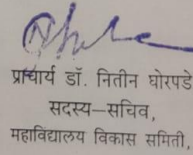 प्राचार्य डॉ. नितीन घोरपडे
सदस्य–सचिव,
महाविद्यालय विकास समिती,